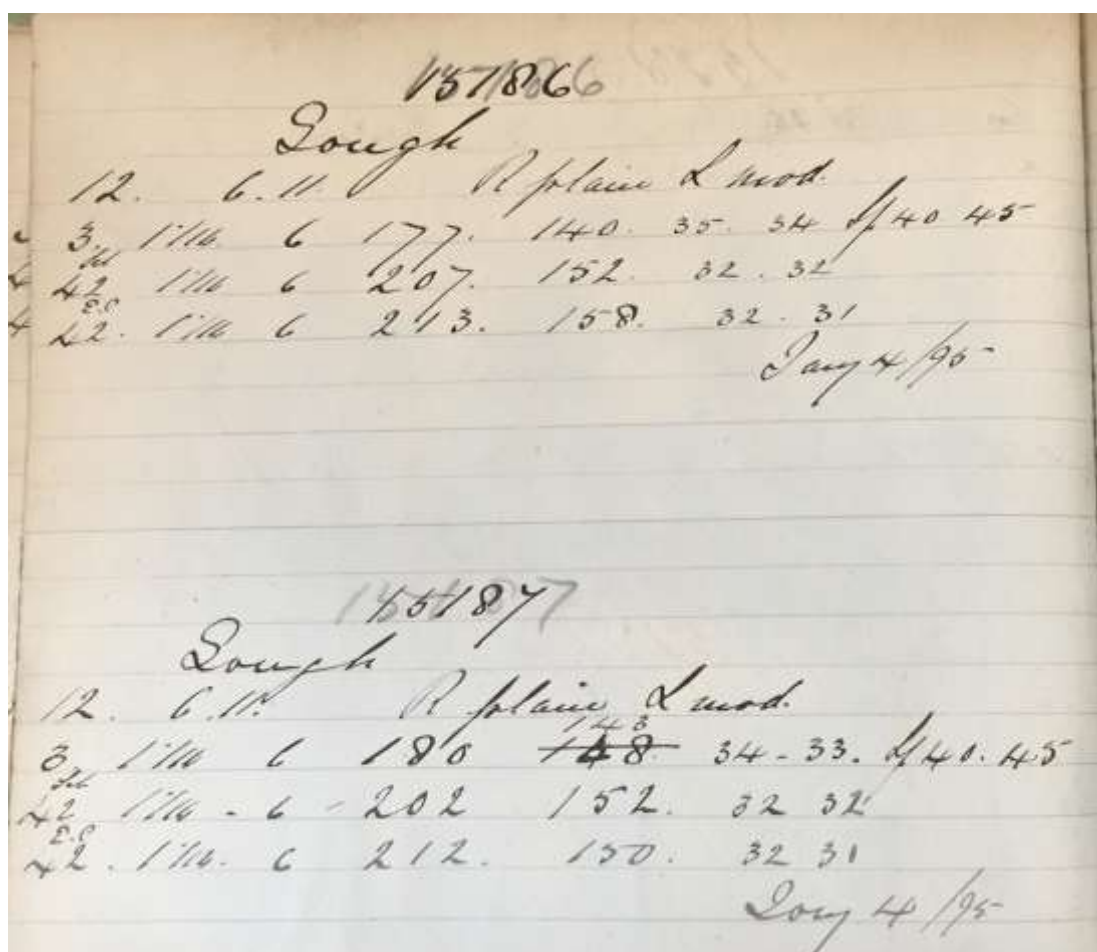 Gough
12. 6.11. R plain L mod.
3 1 1/16 6 177. 140. 35. 34 Sf 40 45
42 1 1/16 6 207. 152. 32. 32
E.C
42. 1 1/16 6 213. 158. 32. 31
Jany 4/95
15187
Gough
12. 6.11. R plain L mod.
143
3 1 1/16 6 180 148 34-33. Sf 40. 45
42 1 1/16 - 6 - 202 152. 32 32
E.C
42. 1 1/16. 6 212. 150. 32 31
Jany 4/95